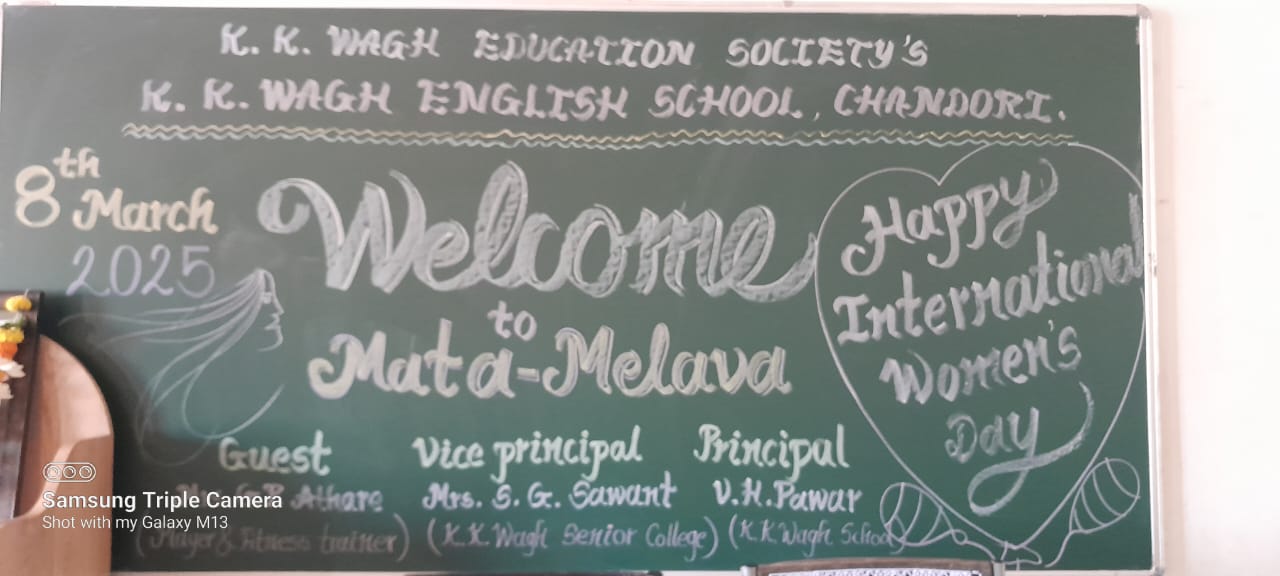 K. K. WAGH EDUCATION SOCIETY'S
K. K. WAGH ENGLISH SCHOOL, CHANDORI.
8th March
2025
Welcome
to
Mata-Melava
Happy
International
Women's
Day
Guest Vice principal Principal
Athare Mrs. S. G. Sawant V.H.Pawar
(Player & Fitness trainer) (K.K.Wagh Senior College) (K.K.Wagh School)
Samsung Triple Camera
Shot with my Galaxy M13